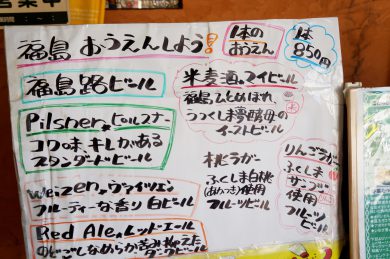 営業中
福島 おうえんしよう!
1本の
おうえん
1本
850円
福島路ビール
Pilsner.ピルスナー
コク味、キレがある
スタンダードビール
weizen.ヴァイツェン
フルーティーな香り 白ビール
Red Ale.レッドエール
のどごしなめらか苦み抑えた
ダークビール
米麦酒.マイビール
福島ひとめぼれ、
うつくしま夢酵母の
イーストビール
桃ラガー
ふくしま白桃
(あかつき)使用
フルーツビール
りんごラガー
ふくしま
サンふじ
使用
フルーツ
ビール